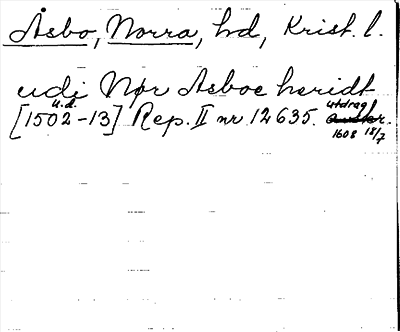 Åsbo, Norra, hd, Krist. l.
udi Nør Asboe heridt
u.d.
[1502-13] Rep. II nr 12635. utdrag
1608 18/7